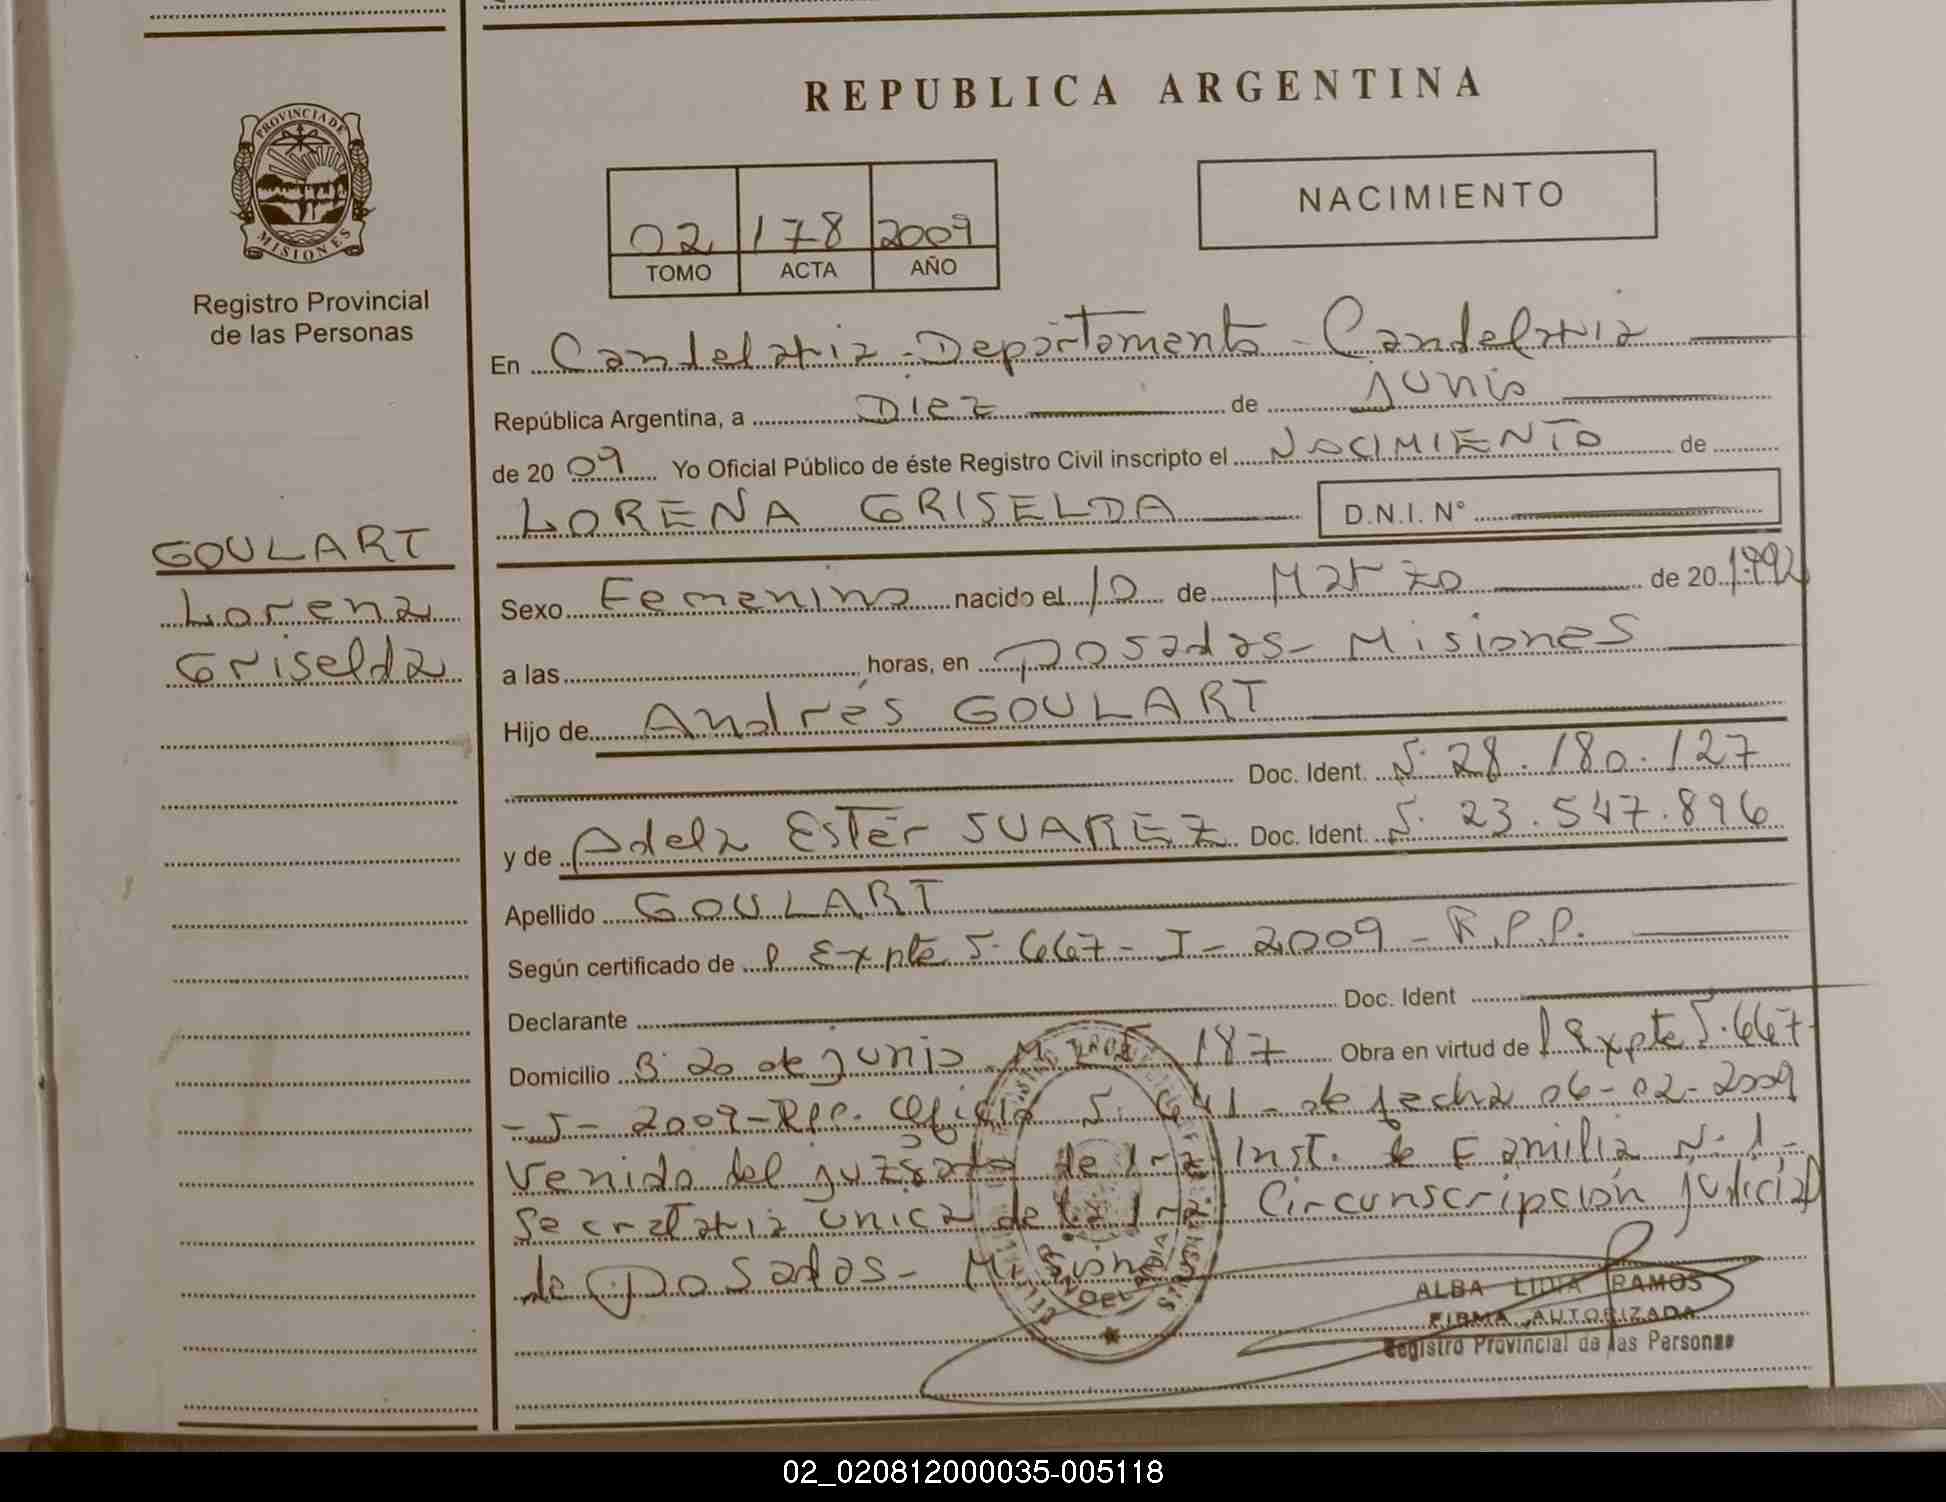 REPUBLICA ARGENTINA
PROVINCIA DE MISIONES
Registro Provincial
de las Personas
GOULART
Lorena
Griselda
02 178 2009
TOMO ACTA AÑO
NACIMIENTO
En Candelaria - Departamento - Candelaria
República Argentina, a Diez de junio
de 2009 Yo Oficial Público de éste Registro Civil inscripto el NACIMIENTO de
LORENA GRISELDA D.N.I. N°
Sexo Femenino nacido el 10 de Marzo de 20 1992
a las horas, en Posadas - Misiones
Hijo de Andrés GOULART
Doc. Ident. N° 28.180.127
y de Adela Ester SUAREZ Doc. Ident. N° 23.547.896
Apellido GOULART
Según certificado de Expte N° 667 - J - 2009 - R.P.P.
Declarante Doc. Ident
Domicilio B° 20 de junio 187 Obra en virtud de Expte N° 667
- J - 2009 - RPP. Oficio N° 641 - de fecha 06-02-2009
Venido del juzgado de 1ra Inst. de Familia N° 1 -
Secretaria unica de la 1ra Circunscripción judicial
de Posadas - Misiones
ALBA LIDIA RAMOS
FIRMA AUTORIZADA
Registro Provincial de las Personas
02_020812000035-005118